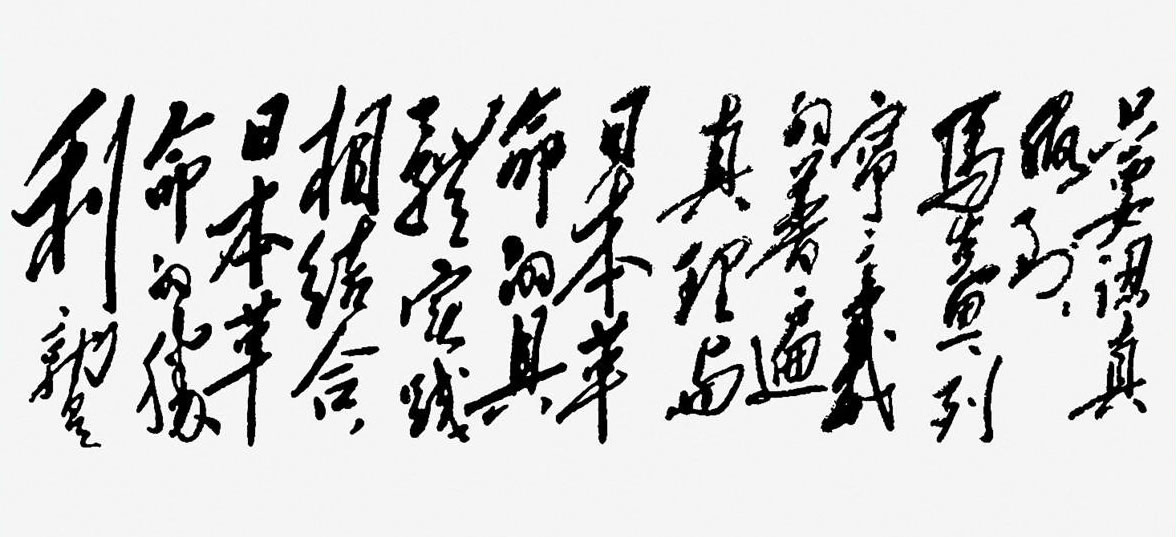 只要認真
做到
馬克思列
寧主義
的普遍
真理与
日本革
命的具
體实踐
相結合,
日本革
命的勝
利就是